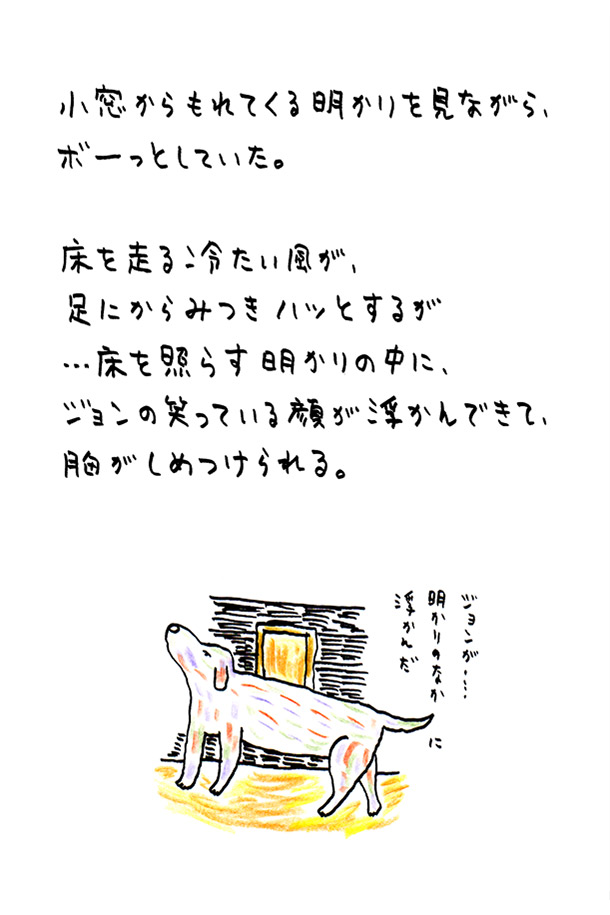 小窓からもれてくる明かりを見ながら、
ボーっとしていた。
床を走る冷たい風が、
足にからみつきハッとするが
…床を照らす明かりの中に、
ジョンの笑っている顔が浮かんできて、
胸がしめつけられる。
ジョンが……
明かりのなかに
浮かんだ